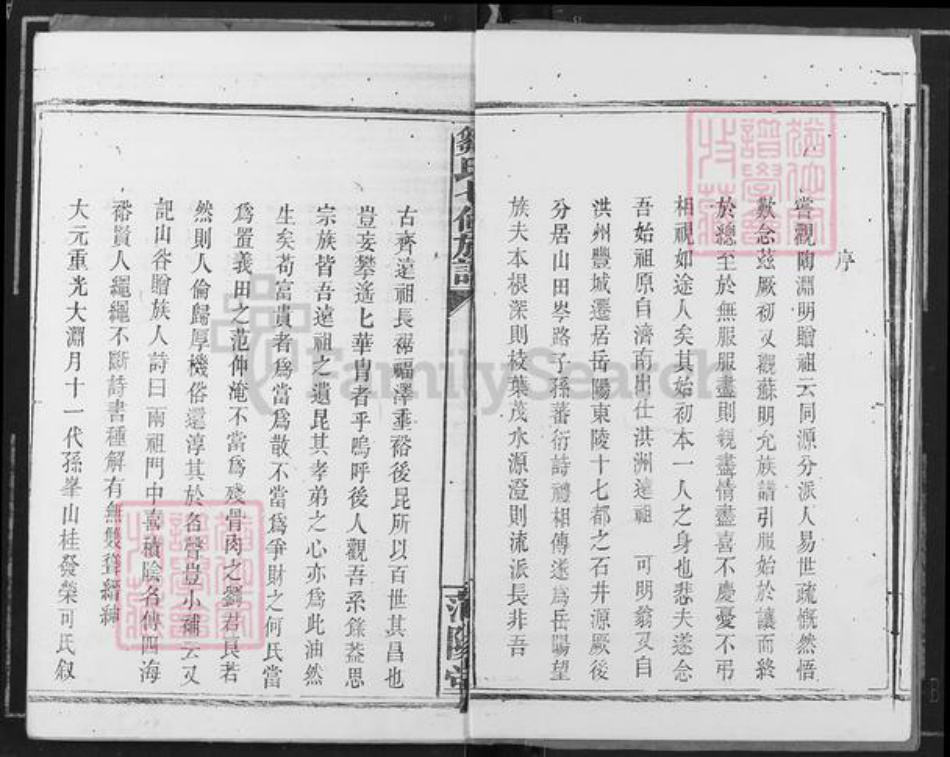 序
嘗觀陶淵明贈祖云同源分派人易世疏慨然悟
歎念茲厥初又觀蘇明允族譜引服始於讓而終
於緦至於無服服盡則親盡情盡喜不慶憂不弔
相視如途人矣其始初本一人之身也悲夫遂念
吾始祖原自濟南出仕洪洲達祖 可明翁又自
洪州豐城遷居岳陽東陵十七都之石井源厥後
分居山田岑路子孫蕃衍詩禮相傳遂爲岳陽望
族夫本根深則枝葉茂水源澄則流派長非吾
族譜
古齊達祖長裾福澤垂裕後昆所以百世其昌也
豈妄攀遙七華胄者乎嗚呼後人觀吾系錄蓋思
宗族皆吾遠祖之遺昆其孝弟之心亦爲此油然
生矣苟富貴者爲當爲散不當爲爭財之何氏當
爲置義田之范仲淹不當爲殘骨肉之劉君良若
然則人倫歸厚機俗還淳其於名聲豈小補云又
記山谷贈族人詩曰兩祖門中喜積陰名傳四海
裕賢人繩繩不斷詩書種解有無雙聳縉紳
大元重光大淵月十一代孫峯山桂發榮可氏叙
FamilySearch